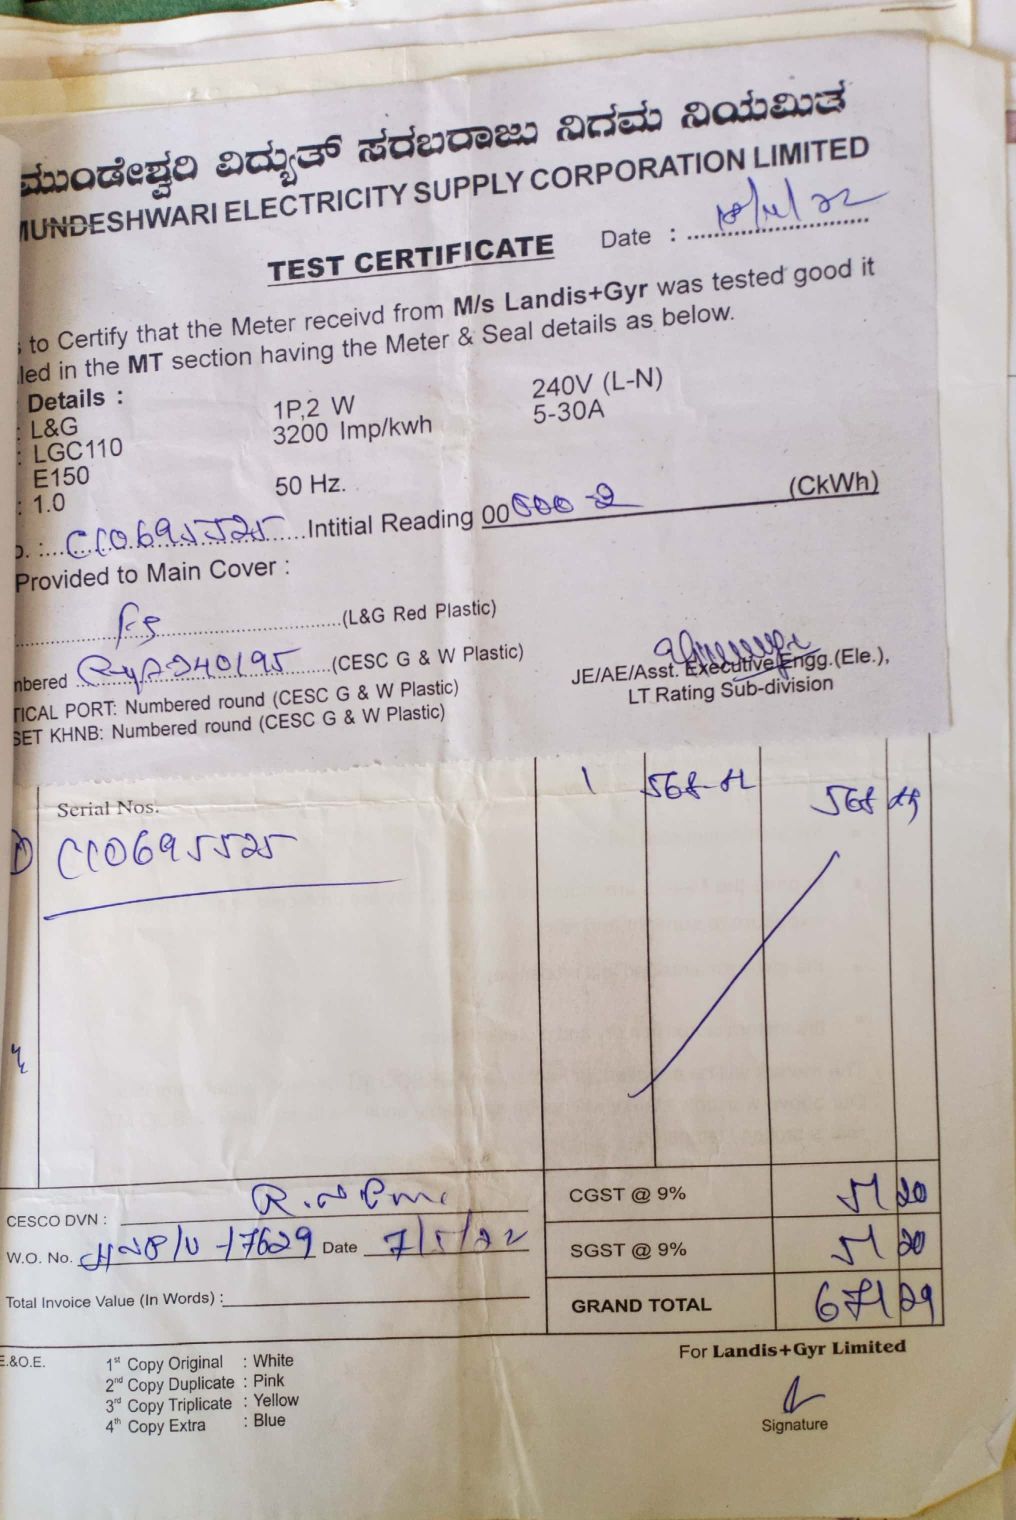 ಮುಂಡೇಶ್ವರಿ ವಿದ್ಯುತ್ ಸರಬರಾಜು ನಿಗಮ ನಿಯಮಿತ
MUNDESHWARI ELECTRICITY SUPPLY CORPORATION LIMITED
TEST CERTIFICATE Date :
to Certify that the Meter receivd from M/s Landis+Gyr was tested good it
led in the MT section having the Meter & Seal details as below.
Details :
: L&G 1P,2 W 240V (L-N)
: LGC110 3200 Imp/kwh 5-30A
E150
: 1.0 50 Hz.
CC0695525 Intitial Reading 00 (CkWh)
Provided to Main Cover :
(L&G Red Plastic)
mbered (CESC G & W Plastic)
TICAL PORT: Numbered round (CESC G & W Plastic)
SET KHNB: Numbered round (CESC G & W Plastic)
JE/AE/Asst. Executive Engg.(Ele.),
LT Rating Sub-division
Serial Nos. 1
CC0695525
CESCO DVN : CGST @ 9% 51 20
W.O. No. 17629 Date 7/5/22 SGST @ 9% 51 20
Total Invoice Value (In Words) : GRAND TOTAL 671 29
E.&O.E. 1st Copy Original : White
2nd Copy Duplicate : Pink
3rd Copy Triplicate : Yellow
4th Copy Extra : Blue
For Landis+Gyr Limited
Signature